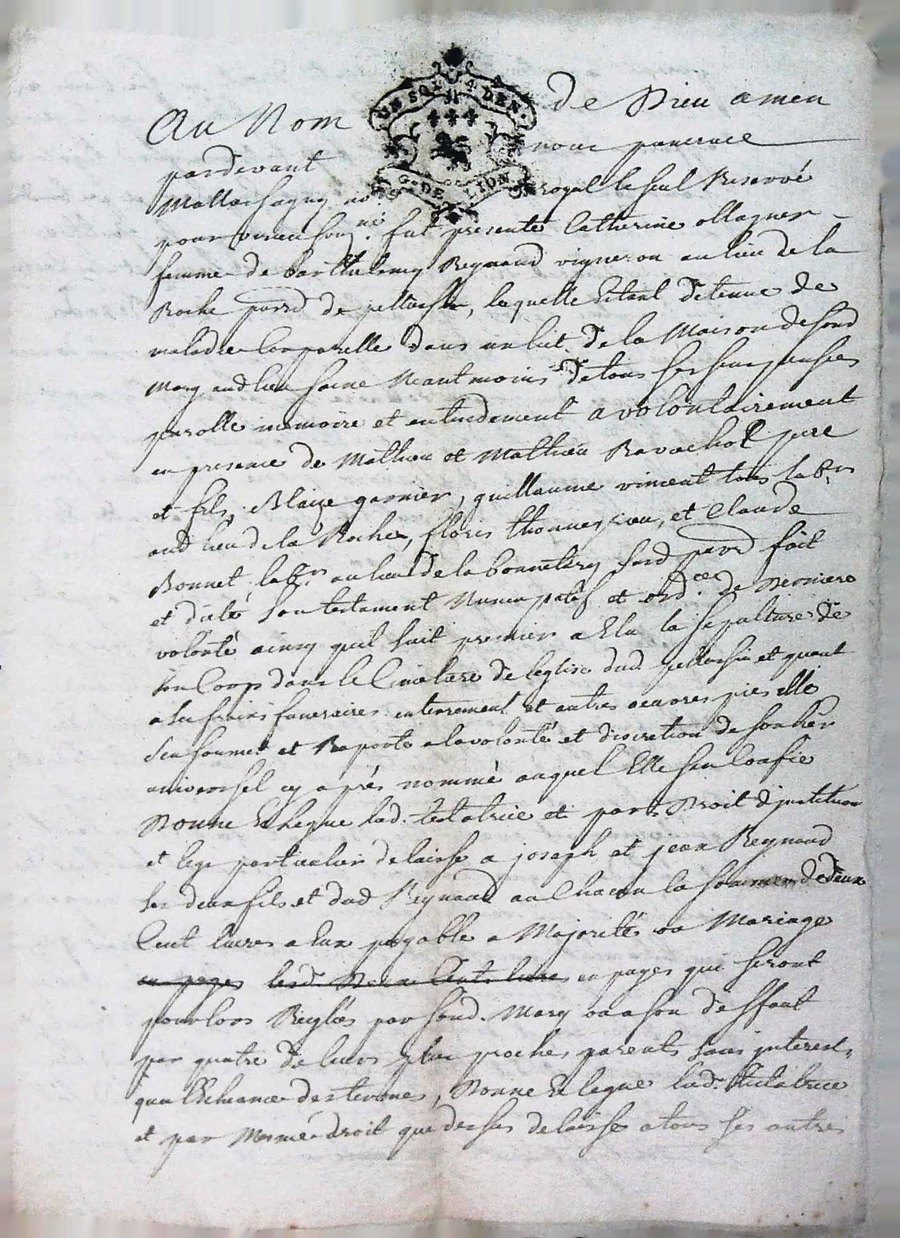 UN SOL 4 DEN.
G. DE LION
Au Nom de Dieu amen
pardevant nous pancrace
Mattassagny no royal le seul Reservé
pour fut presente Catherine ollagner
femme de barthelemy Reynaud vigneron au lieu de la
Roche parrd de pellussin, laquelle Estant detenue de
maladie Corporelle dans un lit de la Maison de sond
Mary aud lieu saine Neantmoins de tous ses sens pensées
parolle memoire et entendement a volontairement
en presence de Mathieu et Mathieu Ravachol pere
et fils, Blaize garnier, guillaume viment tous labrs
aud lieu de la Roche, floris et Claude
Bonnet labr au lieu de la bonnetery susd parrd fait
et dicté son testament Nuncupatif et ordce de derniere
volonté ainsy qu'il suit premier a Elu la sepulture de
son Corps dans le Cimetiere de leglise dud pellussin et quant
a ses frais funeraires enterrement et autres oeuvres pies elle
sen soumet et Raporte a la volonté et discretion de son her
universel cy après nommé auquel Elle sen Confie
Donne et legue lad. testatrice et par Droit dinstitution
et legs particulier delaisse a joseph et jean Reynaud
ses deux fils et dud Reynaud a un Chacun la somme de deux
Cent livres a Eux payable a Majorité ou Mariage
en pages lesd. Deux Cents livres en pages que seront
pour lors Reglés par sond. Mary ou a son deffaut
par quatre de leurs plus proches parents sans interest
qua lEcheance des termes, Donne et legue lad. testatrice
et par Mesme droit que dessus delaisse a tous ses autres